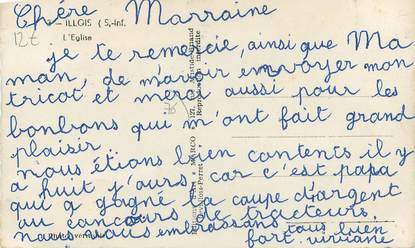 Chére Marraine
- ILLOIS (S.-Inf.
12t
L'Eglise
je te remercie, ainsi que Ma
man, de m'avoir envoyer mon
tricot et merci aussi pour les
bonbons qui m'ont fait grand
plaisir.
nous étions bien contents il y
a huit j'ours, car c'est papa
qui a gagné la coupe d'argent
au concours de tracteurs.
nous vous embrassons tous bien
fort.
Reproduction interdite